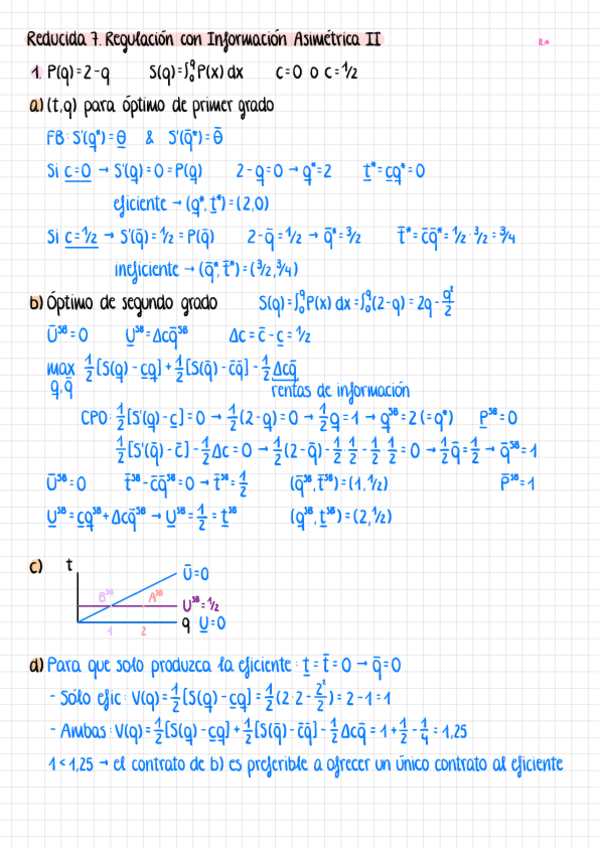 Reducida 7. Regulación con Información Asimétrica II
1. P(q)=2-q S(q)=∫₀^q P(x)dx c=0 o c=1/2
a) (t,q) para óptimo de primer grado
FB: S'(q̲*)=θ̲ & S'(q̄*)=θ̄
Si c=0 → S'(q)=0=P(q) 2-q=0 → q̲*=2 t̲*=c̲q̲*=0
eficiente → (q̲*,t̲*)=(2,0)
Si c=1/2 → S'(q̄)=1/2=P(q̄) 2-q̄=1/2 → q̄*=3/2 t̄*=c̄q̄*=1/2·3/2=3/4
ineficiente → (q̄*,t̄*)=(3/2,3/4)
b) Óptimo de segundo grado S(q)=∫₀^q P(x)dx=∫₀^q(2-q)=2q-q²/2
Ū^SB=0 U̲^SB=Δcq̄^SB Δc=c̄-c̲=1/2
max 1/2[S(q̲)-c̲q̲]+1/2[S(q̄)-c̄q̄]-1/2Δcq̄
q̲,q̄ rentas de información
CPO: 1/2[S'(q̲)-c̲]=0 → 1/2(2-q̲)=0 → 1/2q̲=1 → q̲^SB=2(=q*) P̲^SB=0
1/2[S'(q̄)-c̄]-1/2Δc=0 → 1/2(2-q̄)-1/2·1/2-1/2·1/2=0 → 1/2q̄=1/2 → q̄^SB=1
Ū^SB=0 t̄^SB-c̄q̄^SB=0 → t̄^SB=1/2 (q̄^SB,t̄^SB)=(1,1/2) P̄^SB=1
U̲^SB=c̲q̲^SB+Δcq̄^SB → U̲^SB=1/2=t̲^SB (q̲^SB,t̲^SB)=(2,1/2)
c) t
Ū=0
B^SB A^SB
U^SB=1/2
1 2 q U̲=0
d) Para que solo produzca la eficiente: t̲=t̄=0 → q̄=0
- Sólo efic: V(q)=1/2[S(q̲)-c̲q̲]=1/2(2·2-2²/2)=2-1=1
- Ambas: V(q)=1/2[S(q̲)-c̲q̲]+1/2[S(q̄)-c̄q̄]-1/2Δcq̄=1+1/2-1/4=1,25
1<1,25 → el contrato de b) es preferible a ofrecer un único contrato al eficiente